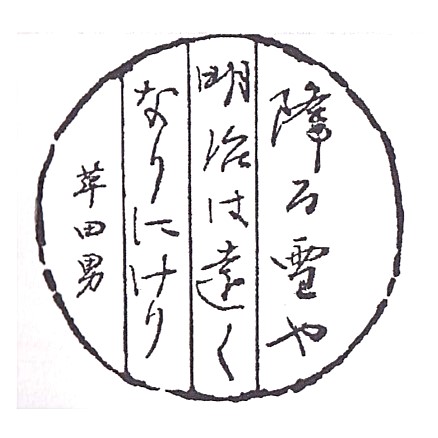 降る雪や
明治は遠く
なりにけり
草田男